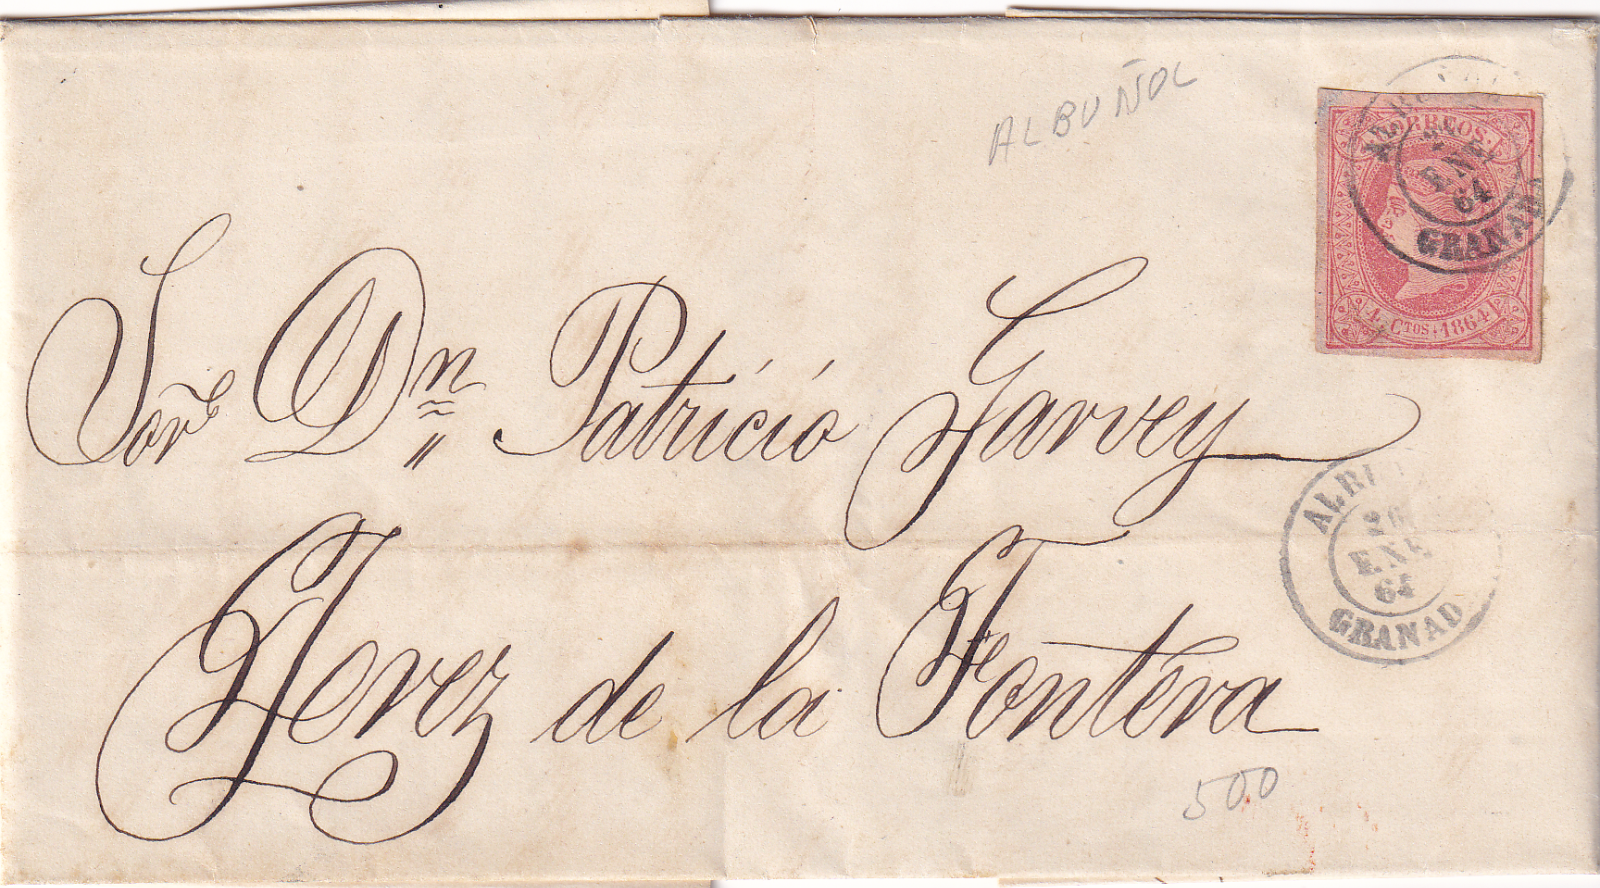 ALBUÑOL
CORREOS
4 CTOS. 1864
ENE
64
GRANADA
Sor. Dn. Patricio Garvey
ALBU
26
ENE
64
GRANAD
Jerez de la Fontera
500